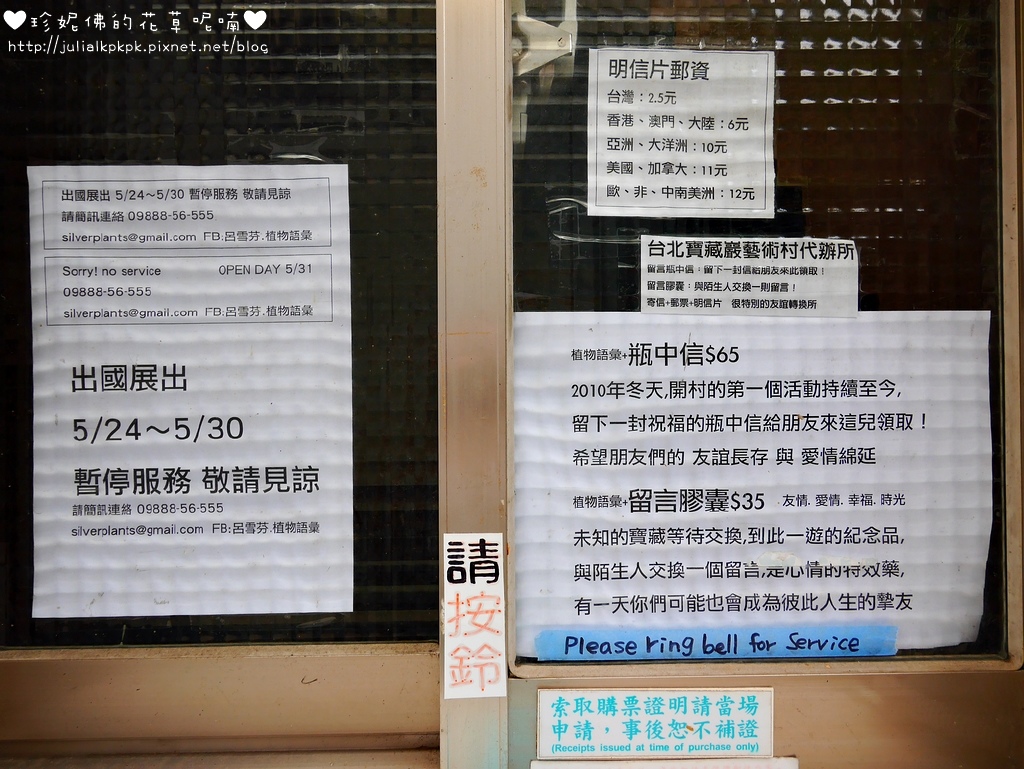 ♥珍妮佛的花草呢喃♥
http://julialkpkpk.pixnet.net/blog
出國展出 5/24～5/30 暫停服務 敬請見諒
請簡訊連絡 09888-56-555
silverplants@gmail.com FB:呂雪芬.植物語彙
Sorry! no service OPEN DAY 5/31
09888-56-555
silverplants@gmail.com FB:呂雪芬.植物語彙
出國展出
5/24～5/30
暫停服務 敬請見諒
請簡訊連絡 09888-56-555
silverplants@gmail.com FB:呂雪芬.植物語彙
請
按
鈴
明信片郵資
台灣：2.5元
香港、澳門、大陸：6元
亞洲、大洋洲：10元
美國、加拿大：11元
歐、非、中南美洲：12元
台北寶藏巖藝術村代辦所
留言瓶中信：留下一封信給朋友來此領取！
留言膠囊：與陌生人交換一則留言！
寄信+郵票+明信片 很特別的友誼轉換所
植物語彙+瓶中信$65
2010年冬天,開村的第一個活動持續至今,
留下一封祝福的瓶中信給朋友來這兒領取！
希望朋友們的 友誼長存 與 愛情綿延
植物語彙+留言膠囊$35 友情. 愛情. 幸福. 時光
未知的寶藏等待交換,到此一遊的紀念品,
與陌生人交換一個留言,是心情的特效藥,
有一天你們可能也會成為彼此人生的摯友
Please ring bell for Service
索取購票證明請當場
申請，事後恕不補證
(Receipts issued at time of purchase only)